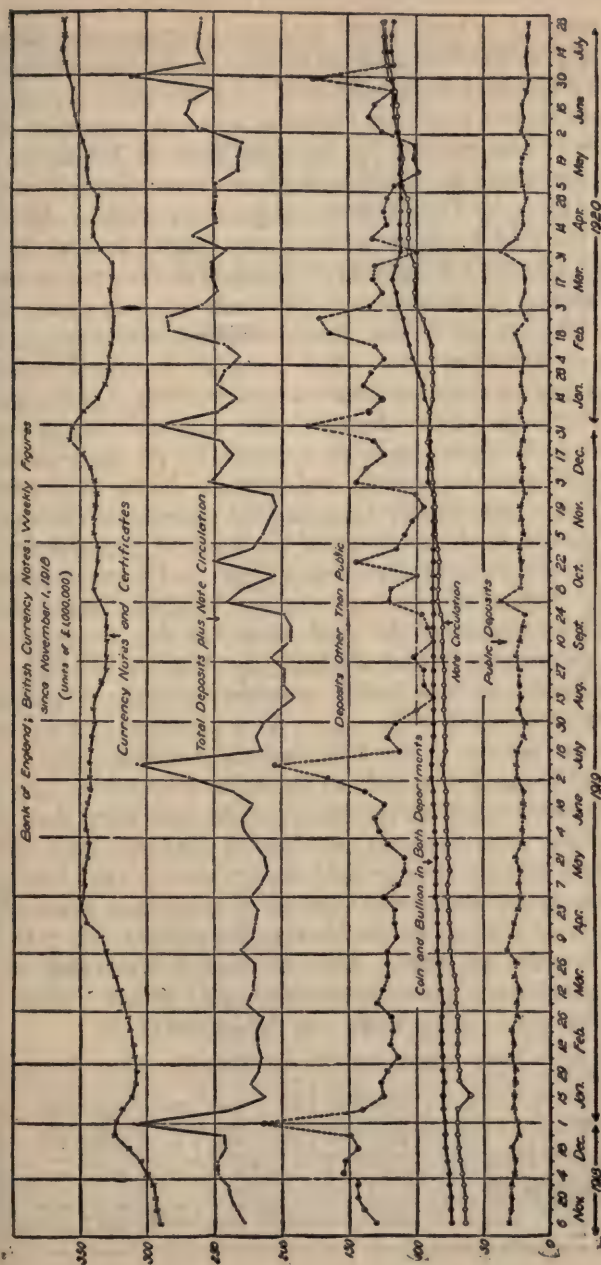 Bank of England; British Currency Notes: Weekly Figures
since November 1, 1918
(units of £1,000,000)
Currency Notes and Certificates
Total Deposits plus Note Circulation
Deposits Other Than Public
Coin and Bullion in Both Departments
Note Circulation
Public Deposits
350
300
250
200
150
100
50
0
6 20 4 18 1 15 29 12 26 12 26 9 23 7 21 4 18 2 16 30 13 27 10 24 8 22 5 19 3 17 31 14 28 4 18 3 17 31 14 28 5 19 2 16 30 14 28
Nov. Dec. Jan. Feb. Mar. Apr. May June July Aug. Sept. Oct. Nov. Dec. Jan. Feb. Mar. Apr. May June July
1918 1919 1920